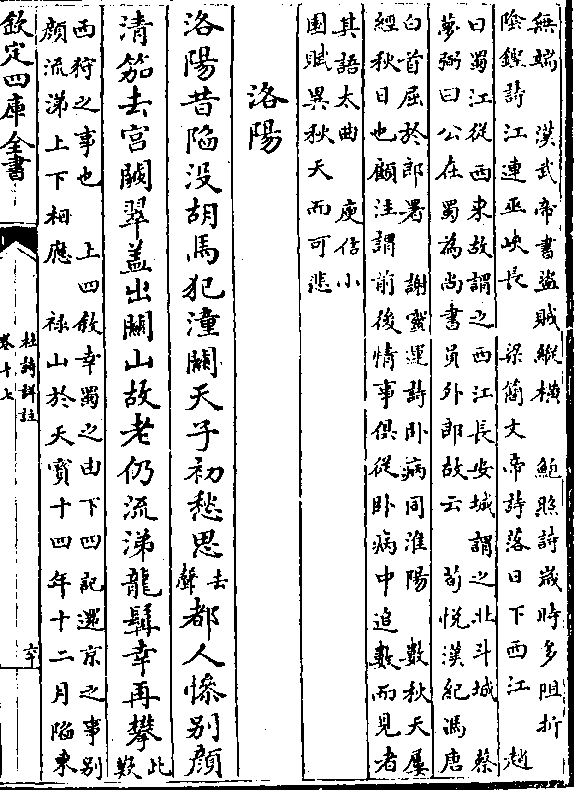 無端　漢武帝書盜賊縱橫　鮑照詩歲時多阻折
陰鏗詩江連巫峽長　梁簡文帝詩落日下西江　趙
曰蜀江從西來故謂之西江長安城謂之北斗城　蔡
夢弼曰公在蜀為尚書員外郎故云　荀悅漢紀馮唐
白首屈於郎署　謝靈運詩卧病同淮陽　數秋天屢
經秋日也顧注謂前後情事俱從卧病中追數而見者
其語太曲　庾信小
園賦異秋天而可悲
洛陽
洛陽昔陷没胡馬犯潼關天子初愁思去聲都人慘别顔
清笳去宫闕翠蓋出關山故老仍流涕龍髯幸再攀此歎
西狩之事也　上四敘幸蜀之由下四記還京之事别
顔流涕上下相應　禄山於天寳十四年十二月陷東
欽定四庫全書
杜詩詳註
卷十七
六十